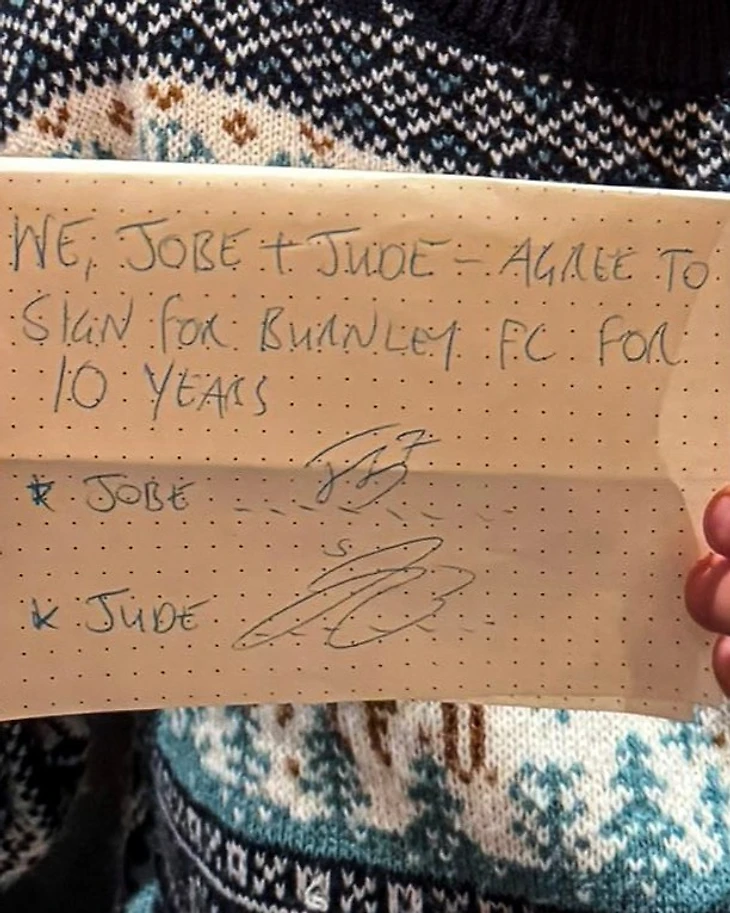 WE, JOBE + JUDE - AGREE TO
SIGN FOR BURNLEY FC FOR
10 YEARS
* JOBE
x JUDE